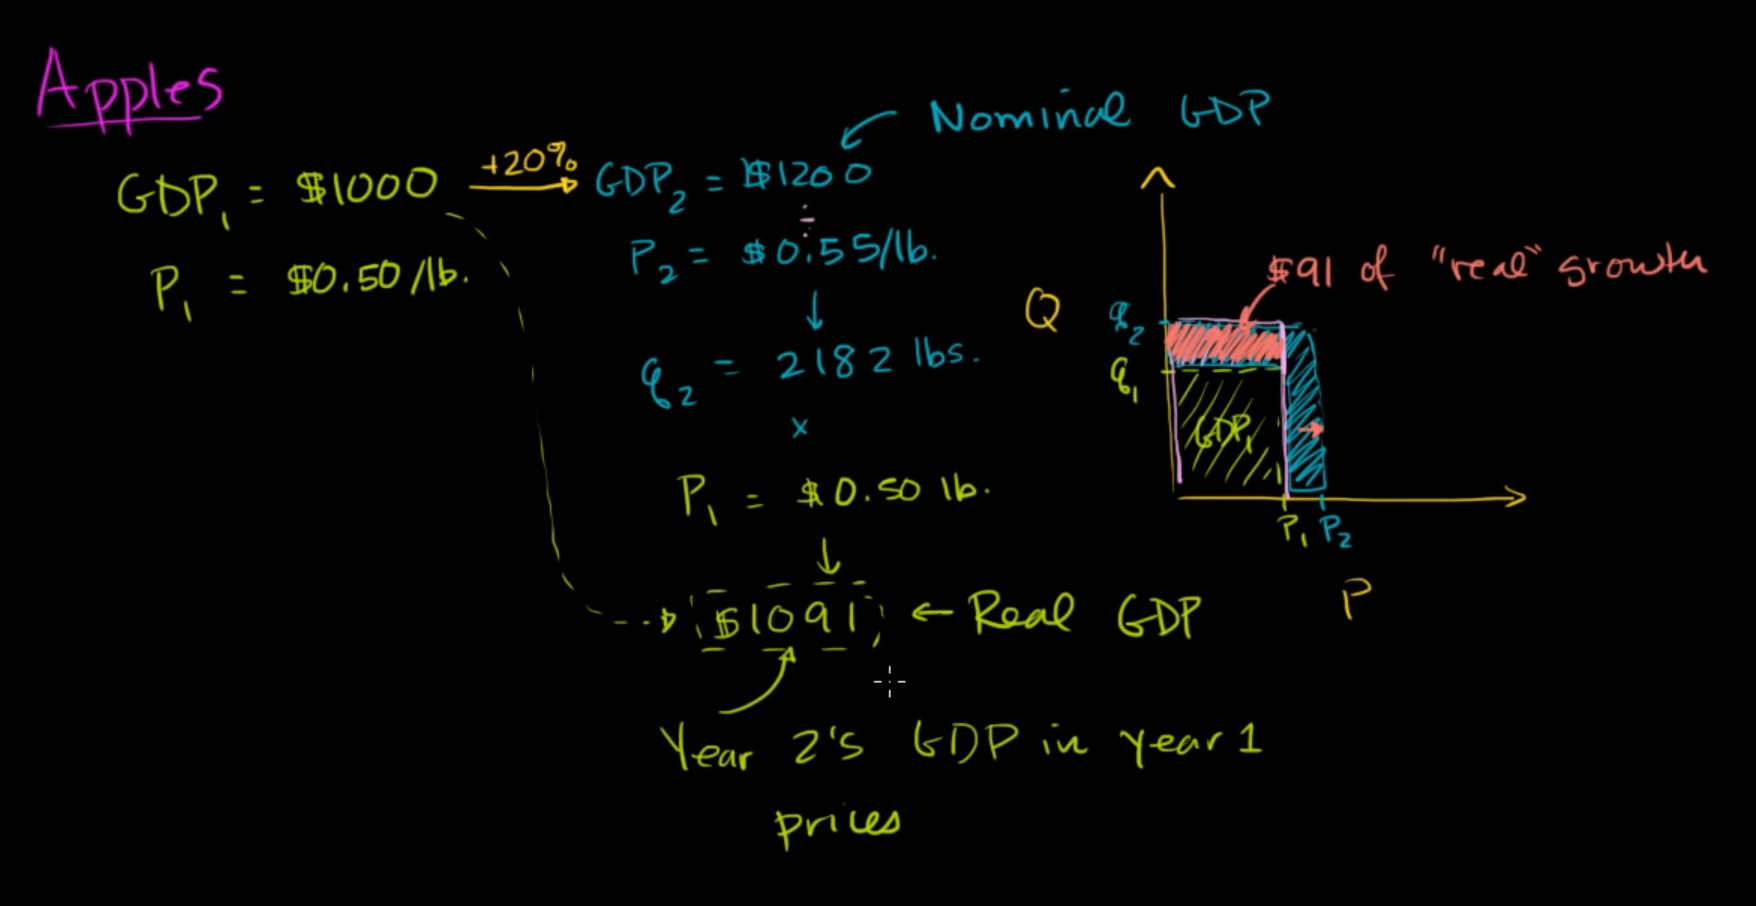 Apples
GDP₁ = $1000
+20%
GDP₂ = $1200
Nominal GDP
÷
P₁ = $0.50/lb.
P₂ = $0.55/lb.
↓
q₂ = 2182 lbs.
x
P₁ = $0.50 lb.
↓
$1091 ← Real GDP
Year 2's GDP in year 1
prices
$91 of "real" growth
Q
q₂
q₁
GDP₁
P₁ P₂
P